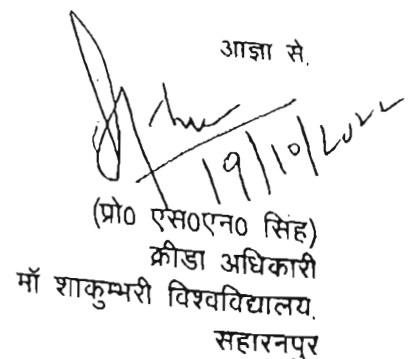 आज्ञा से,
19/10/2022
(प्रो० एस०एन० सिंह)
क्रीडा अधिकारी
मॉ शाकुम्भरी विश्वविद्यालय,
सहारनपुर